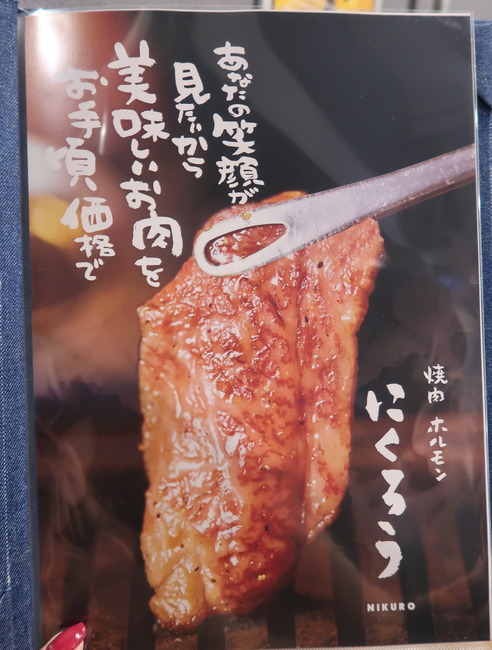 あなたの笑顔が
見たいから
美味しいお肉を
お手頃価格で
焼肉 ホルモン
にくろう
NIKURO